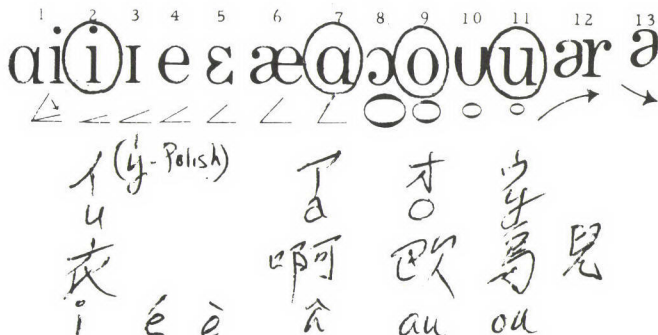 1 2 3 4 5 6 7 8 9 10 11 12 13
ɑi i ɪ e ɛ æ ɑ ɔ o ʊ u ər ə
イ (ý - Polish) ア オ ウ
u a o
衣 啊 欧 烏 兒
i é è â au ou